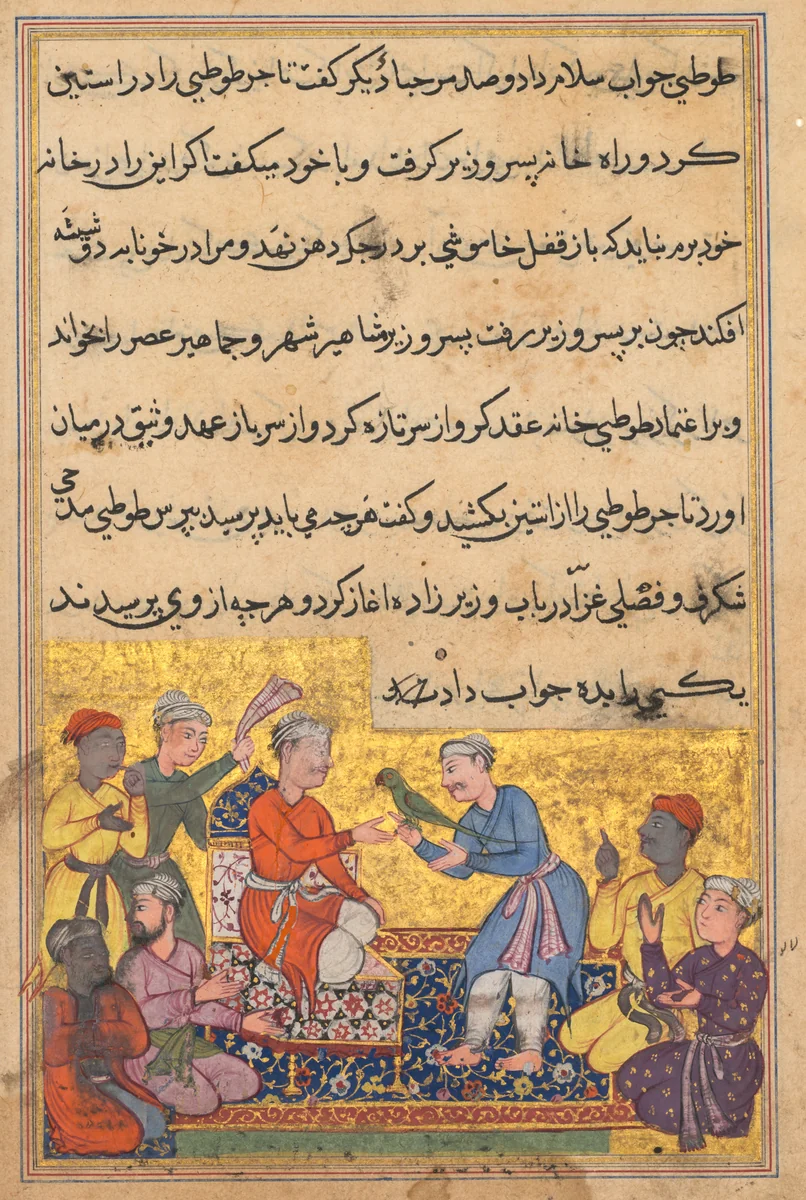 طوطیی جواب سلام داد و صد مرحبا دیکر کفت تاجر طوطیی را در استین
کرد و راه خانه پسر وزیر کرفت و با خود میکفت اکر این را در خانه
خود برم نباید که باز قفل خاموشی بر درجک دهن نهد و مرا در خونابه دو شیشه
افکند چون بر پسر وزیر رفت پسر وزیر مشاهیر شهر و جماهیر عصر را بخواند
و بر اعتماد طوطیی خانه عقد کرو از سر تازه کرد و از سر باز عهد وثیق در میان
اورد تاجر طوطیی را از استین بکشید و کفت هر چه می باید پرسید بپرس طوطیی مدحی
شکرف و فصلی غرا در باب وزیر زاده اغاز کرد و هر چه از وی پرسیدند
یکیی را بده جواب داد